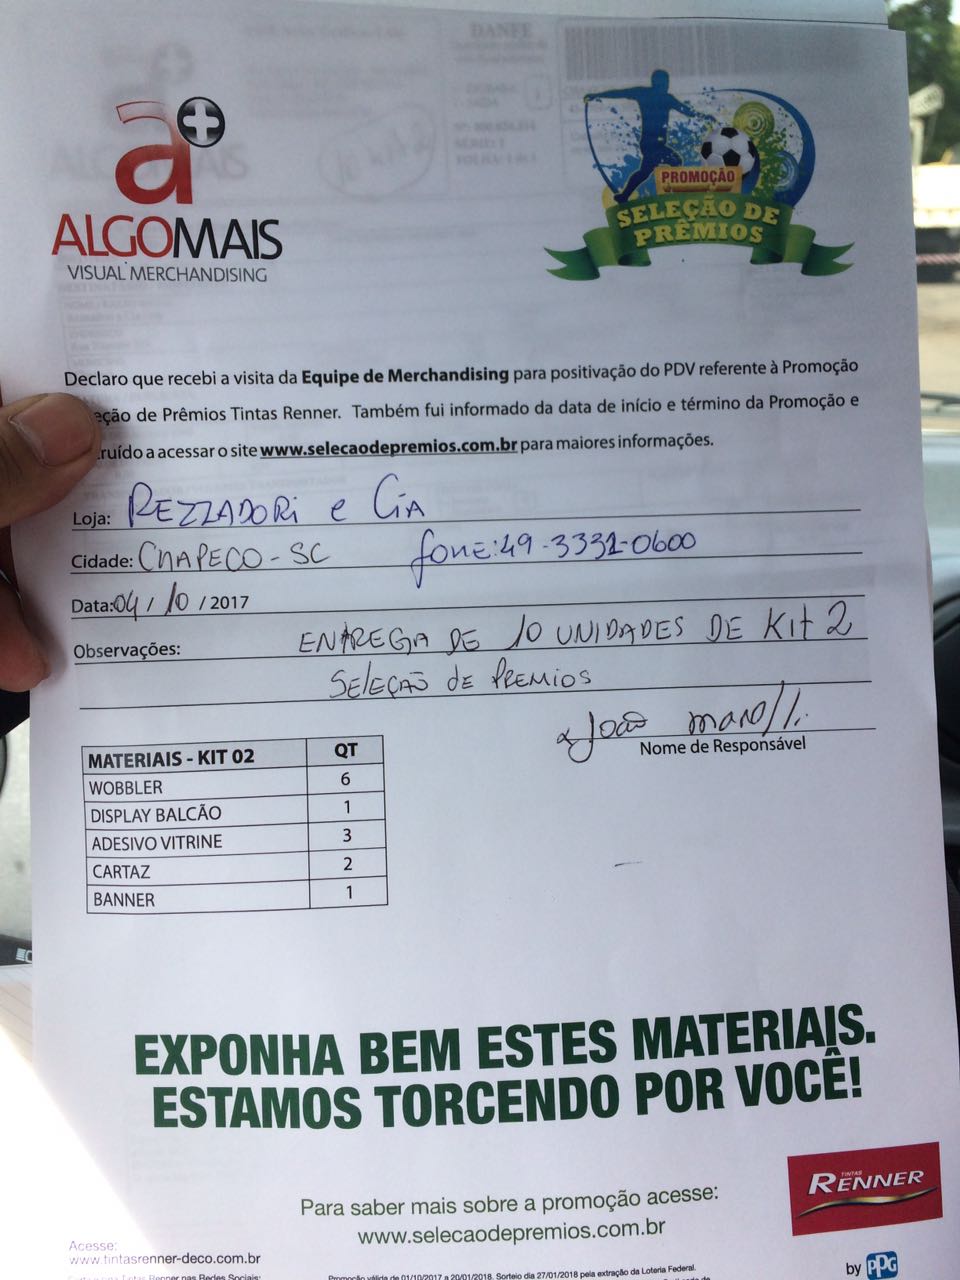 DANFE
a+
ALGOMAIS
VISUAL MERCHANDISING
PROMOÇÃO
SELEÇÃO DE
PRÊMIOS
Declaro que recebi a visita da Equipe de Merchandising para positivação do PDV referente à Promoção
eção de Prêmios Tintas Renner. Também fui informado da data de início e término da Promoção e
ruído a acessar o site www.selecaodepremios.com.br para maiores informações.
Loja: REZZADORI e CIA
Cidade: CHAPECO - SC fone: 49-3331-0600
Data: 04 / 10 / 2017
Observações: ENTREGA DE 10 UNIDADES DE KIT 2
SELEÇÃO DE PREMIOS
João
Nome de Responsável
MATERIAIS - KIT 02 QT
WOBBLER 6
DISPLAY BALCÃO 1
ADESIVO VITRINE 3
CARTAZ 2
BANNER 1
EXPONHA BEM ESTES MATERIAIS.
ESTAMOS TORCENDO POR VOCÊ!
TINTAS
RENNER
Para saber mais sobre a promoção acesse:
www.selecaodepremios.com.br
Acesse:
www.tintasrenner-deco.com.br
by PPG
Tintas Renner nas Redes Sociais:
Promoção válida de 01/10/2017 a 20/01/2018. Sorteio dia 27/01/2018 pela extração da Loteria Federal.